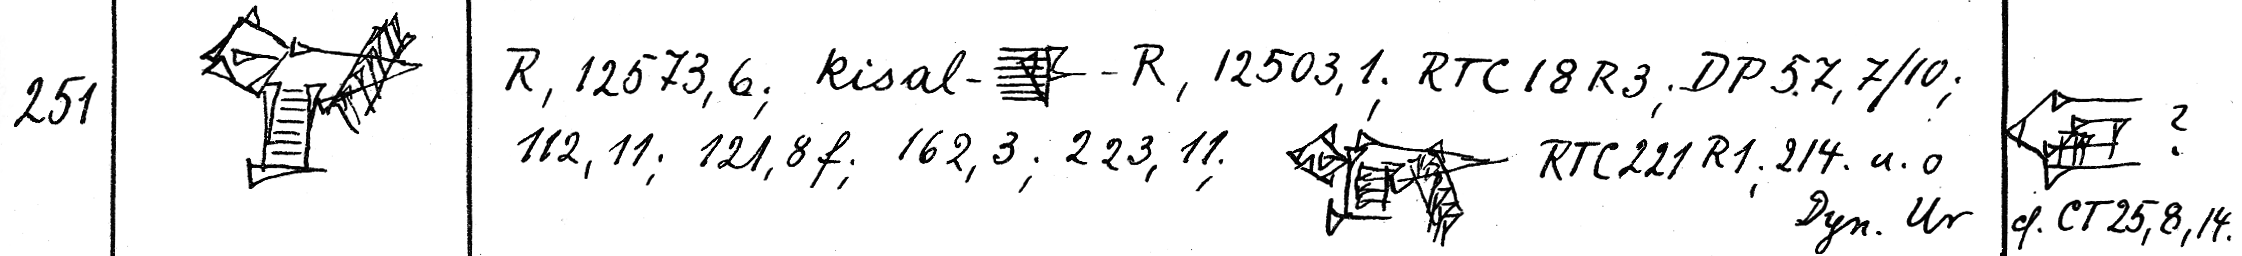 251
R, 12573,6; kisal- - R, 12503,1; RTC 18 R3; DP 57, 7/10;
112,11; 121,8f; 162,3; 223,11; RTC 221 R1; 214. u. o
Dyn. Ur
?
cf. CT 25,8,14.